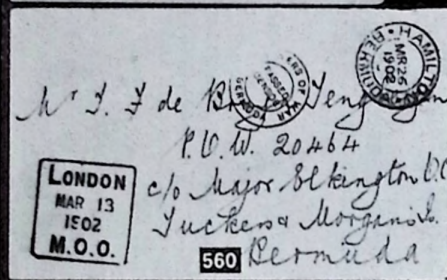 HAMILTON
BERMUDA
MR 26
1902
OF WAR
Mr J. F de
P.O.W. 20464
c/o Major Elkington
Tuckers & Morgans Is.
Bermuda
LONDON
MAR 13
1902
M.O.O.
560